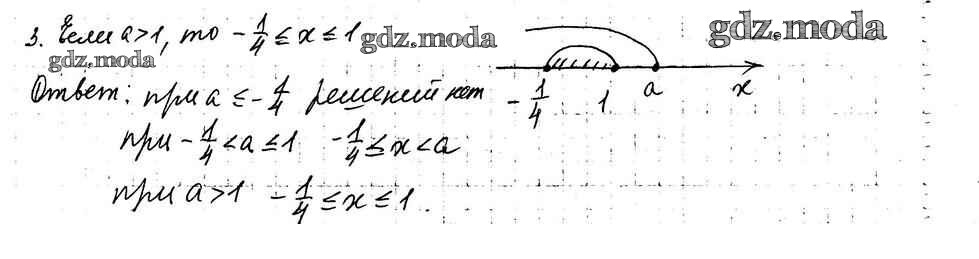 3. Если a>1, то -1/4 ≤ x ≤ 1 gdz.moda gdz.moda
gdz.moda
Ответ: при a ≤ -1/4 решений нет
-1/4 1 a x
при -1/4 < a ≤ 1 -1/4 ≤ x < a
при a>1 -1/4 ≤ x ≤ 1.